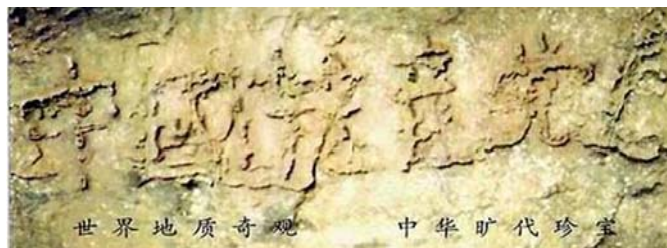 中國共产党
世界地质奇观 中华旷代珍宝